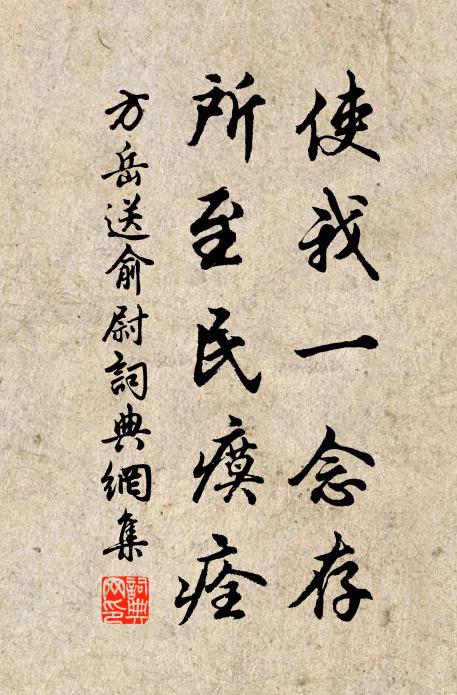 使我一念存
所至民瘼痊
方岳送俞尉詞典網集
詞典
网印